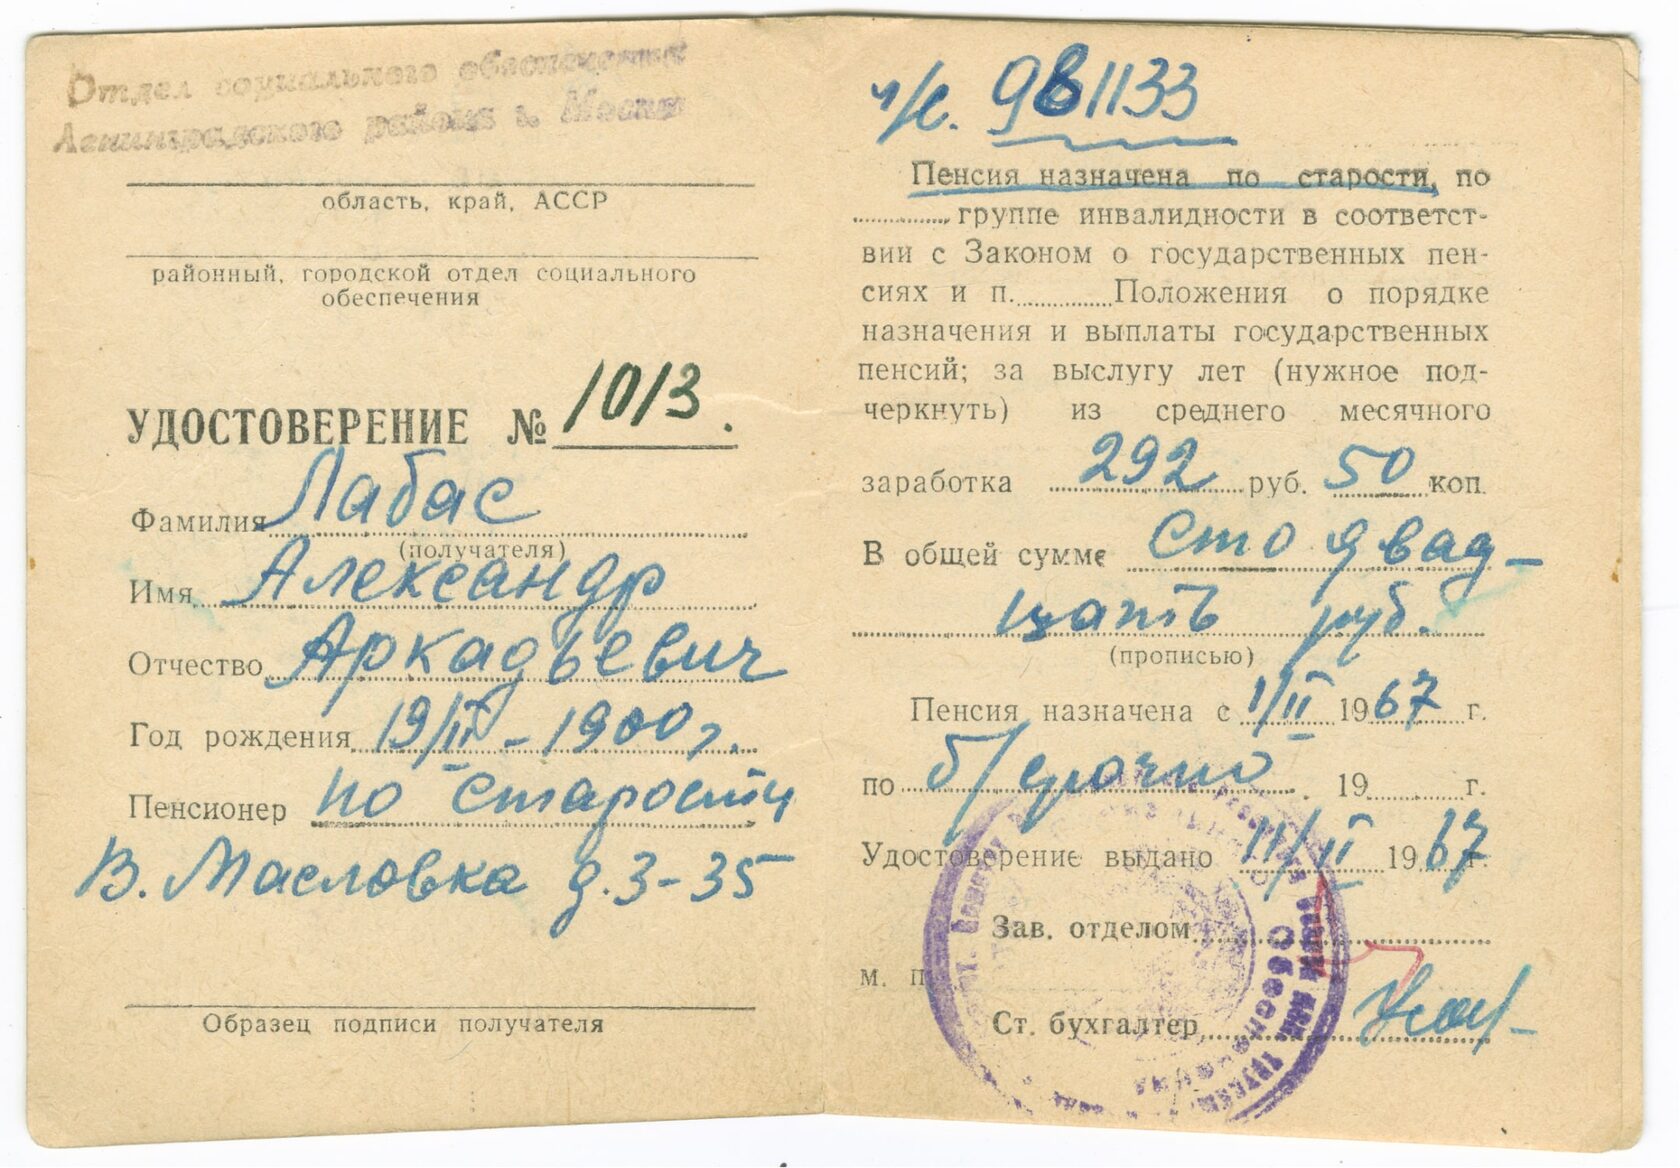 Отдел социального обеспечения
Ленинградского района г. Москвы
область, край, АССР
районный, городской отдел социального
обеспечения
УДОСТОВЕРЕНИЕ № 1013.
Фамилия Лабас
(получателя)
Имя Александр
Отчество Аркадьевич
Год рождения 19/II – 1900 г.
Пенсионер по старости
В. Масловка д. 3-35
Образец подписи получателя
981133
Пенсия назначена по старости, по
группе инвалидности в соответст-
вии с Законом о государственных пен-
сиях и п. Положения о порядке
назначения и выплаты государственных
пенсий; за выслугу лет (нужное под-
черкнуть) из среднего месячного
заработка 292 руб. 50 коп.
В общей сумме сто двад-
цать руб.
(прописью)
Пенсия назначена с 1/II 1967 г.
по б/срочно 19 г.
Удостоверение выдано 11/II 1967 г.
Зав. отделом
м. п.
Ст. бухгалтер